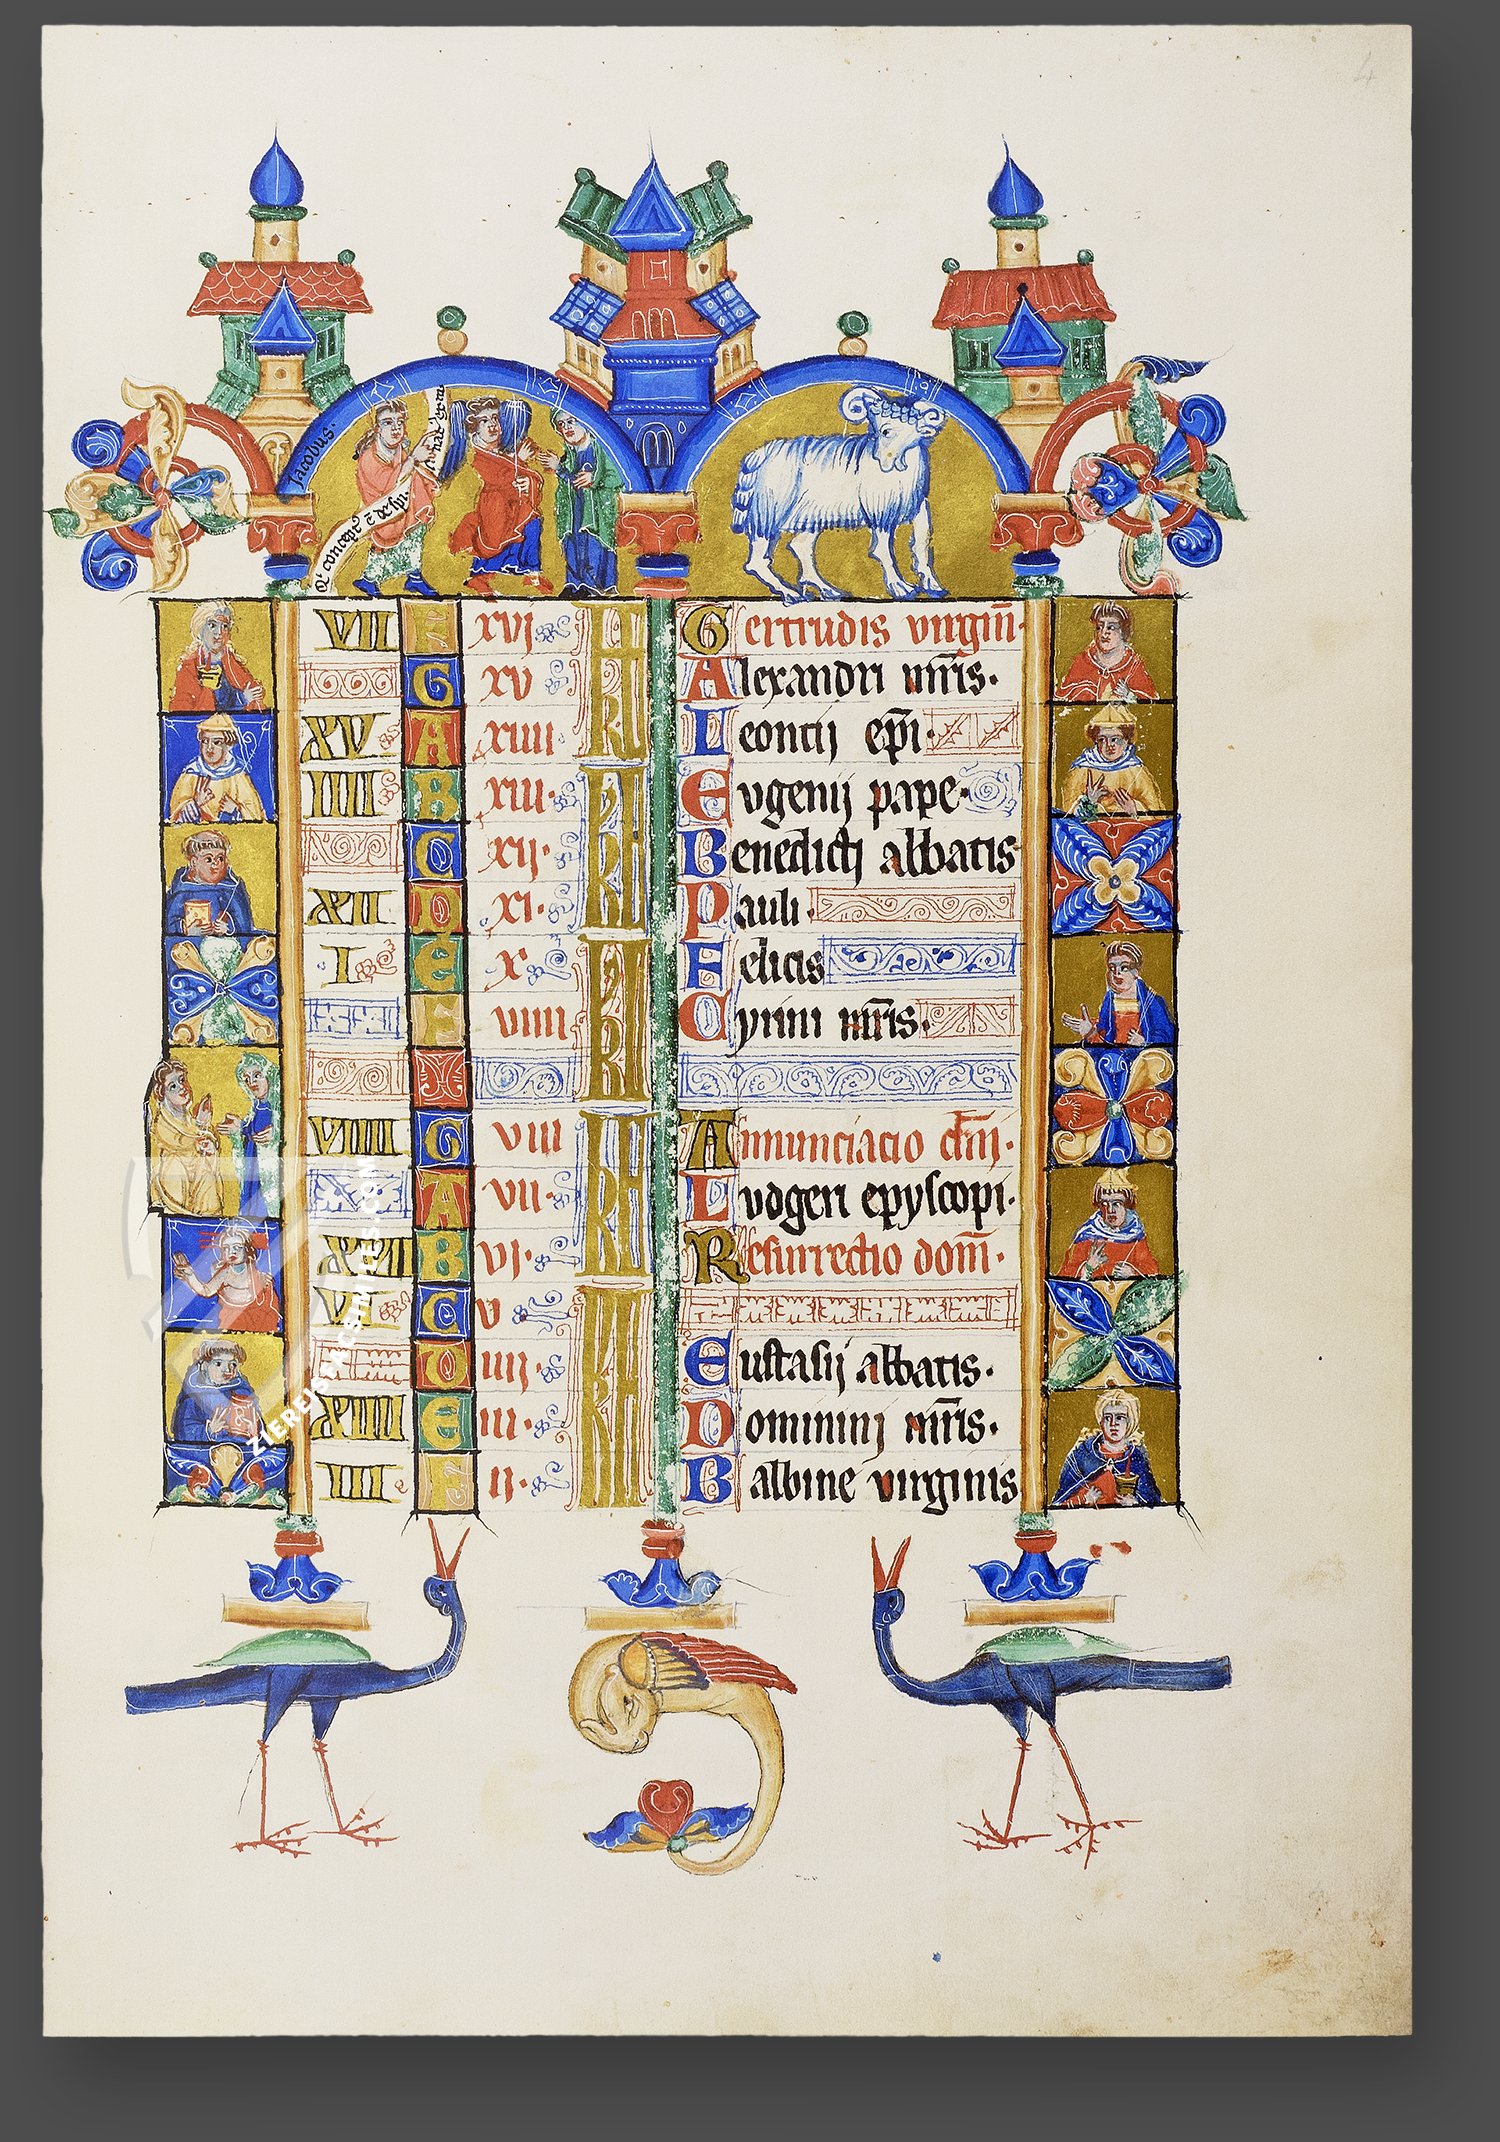 4
Jacobus·
VII F xvj KL Gertrudis virgin̄·
G xv KL Alexandri mr̄is·
XV A xiiii KL Leoncij ep̄i·
IIII B xiii· KL Evgenij pape·
C xij· KL Benedicti abbatis
XII D xi· KL Pauli·
I E x· KL Felicis
F viiii KL Cyrini mr̄is·
VIIII G viii KL Annunciacio dn̄i·
A vii· KL Lvdgeri epyscopi·
XVII B vj· KL Resurrectio dom̄·
VI C v KL
D iiij· KL Eustasij abbatis·
XIIII E iii· KL Dominini mr̄is·
III F ii· KL Balbine virginis
ZIEREIS FACSIMILES.COM